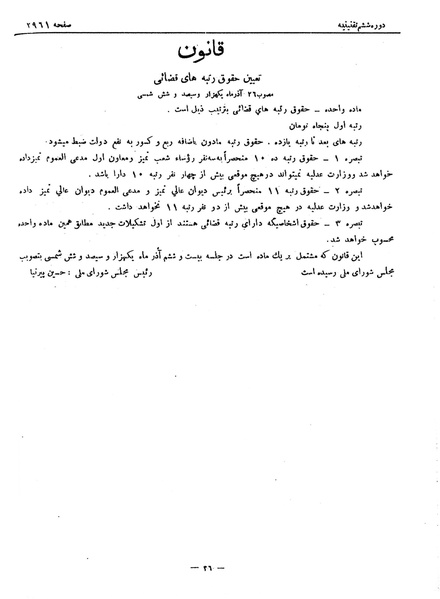 دوره ششم تقنینیه
صفحه ۲۹۶۱
قانون
تعیین حقوق رتبه های قضائی
مصوب ۲۶ آذرماه یکهزار و سیصد و شش شمسی
ماده واحده ـ حقوق رتبه های قضائی بترتیب ذیل است .
رتبه اول پنجاه تومان
رتبه های بعد تا رتبه یازده . حقوق رتبه مادون باضافه ربع و کسور به نفع دولت ضبط میشود .
تبصره ۱ ـ حقوق رتبه ده ۱۰ منحصراً به سه نفر رؤساء شعب تمیز ومعاون اول مدعی العموم تمیز داده
خواهد شد ووزارت عدلیه نمیتواند درهیچ موقعی بیش از چهار نفر رتبه ۱۰ دارا باشد .
تبصره ۲ ـ حقوق رتبه ۱۱ منحصراً برئیس دیوان عالی تمیز و مدعی العموم دیوان عالی تمیز داده
خواهدشد و وزارت عدلیه در هیچ موقعی بیش از دو نفر رتبه ۱۱ نخواهد داشت .
تبصره ۳ ـ حقوق اشخاصیکه دارای رتبه قضائی هستند از اول تشکیلات جدید مطابق همین ماده واحده
محسوب خواهد شد .
این قانون که مشتمل بر یك ماده است در جلسه بیست و ششم آذر ماه یکهزار و سیصد و شش شمسی بتصویب
مجلس شورای ملی رسیده است
رئیس مجلس شورای ملی : حسین پیرنیا
ـ ۲۶ ـ